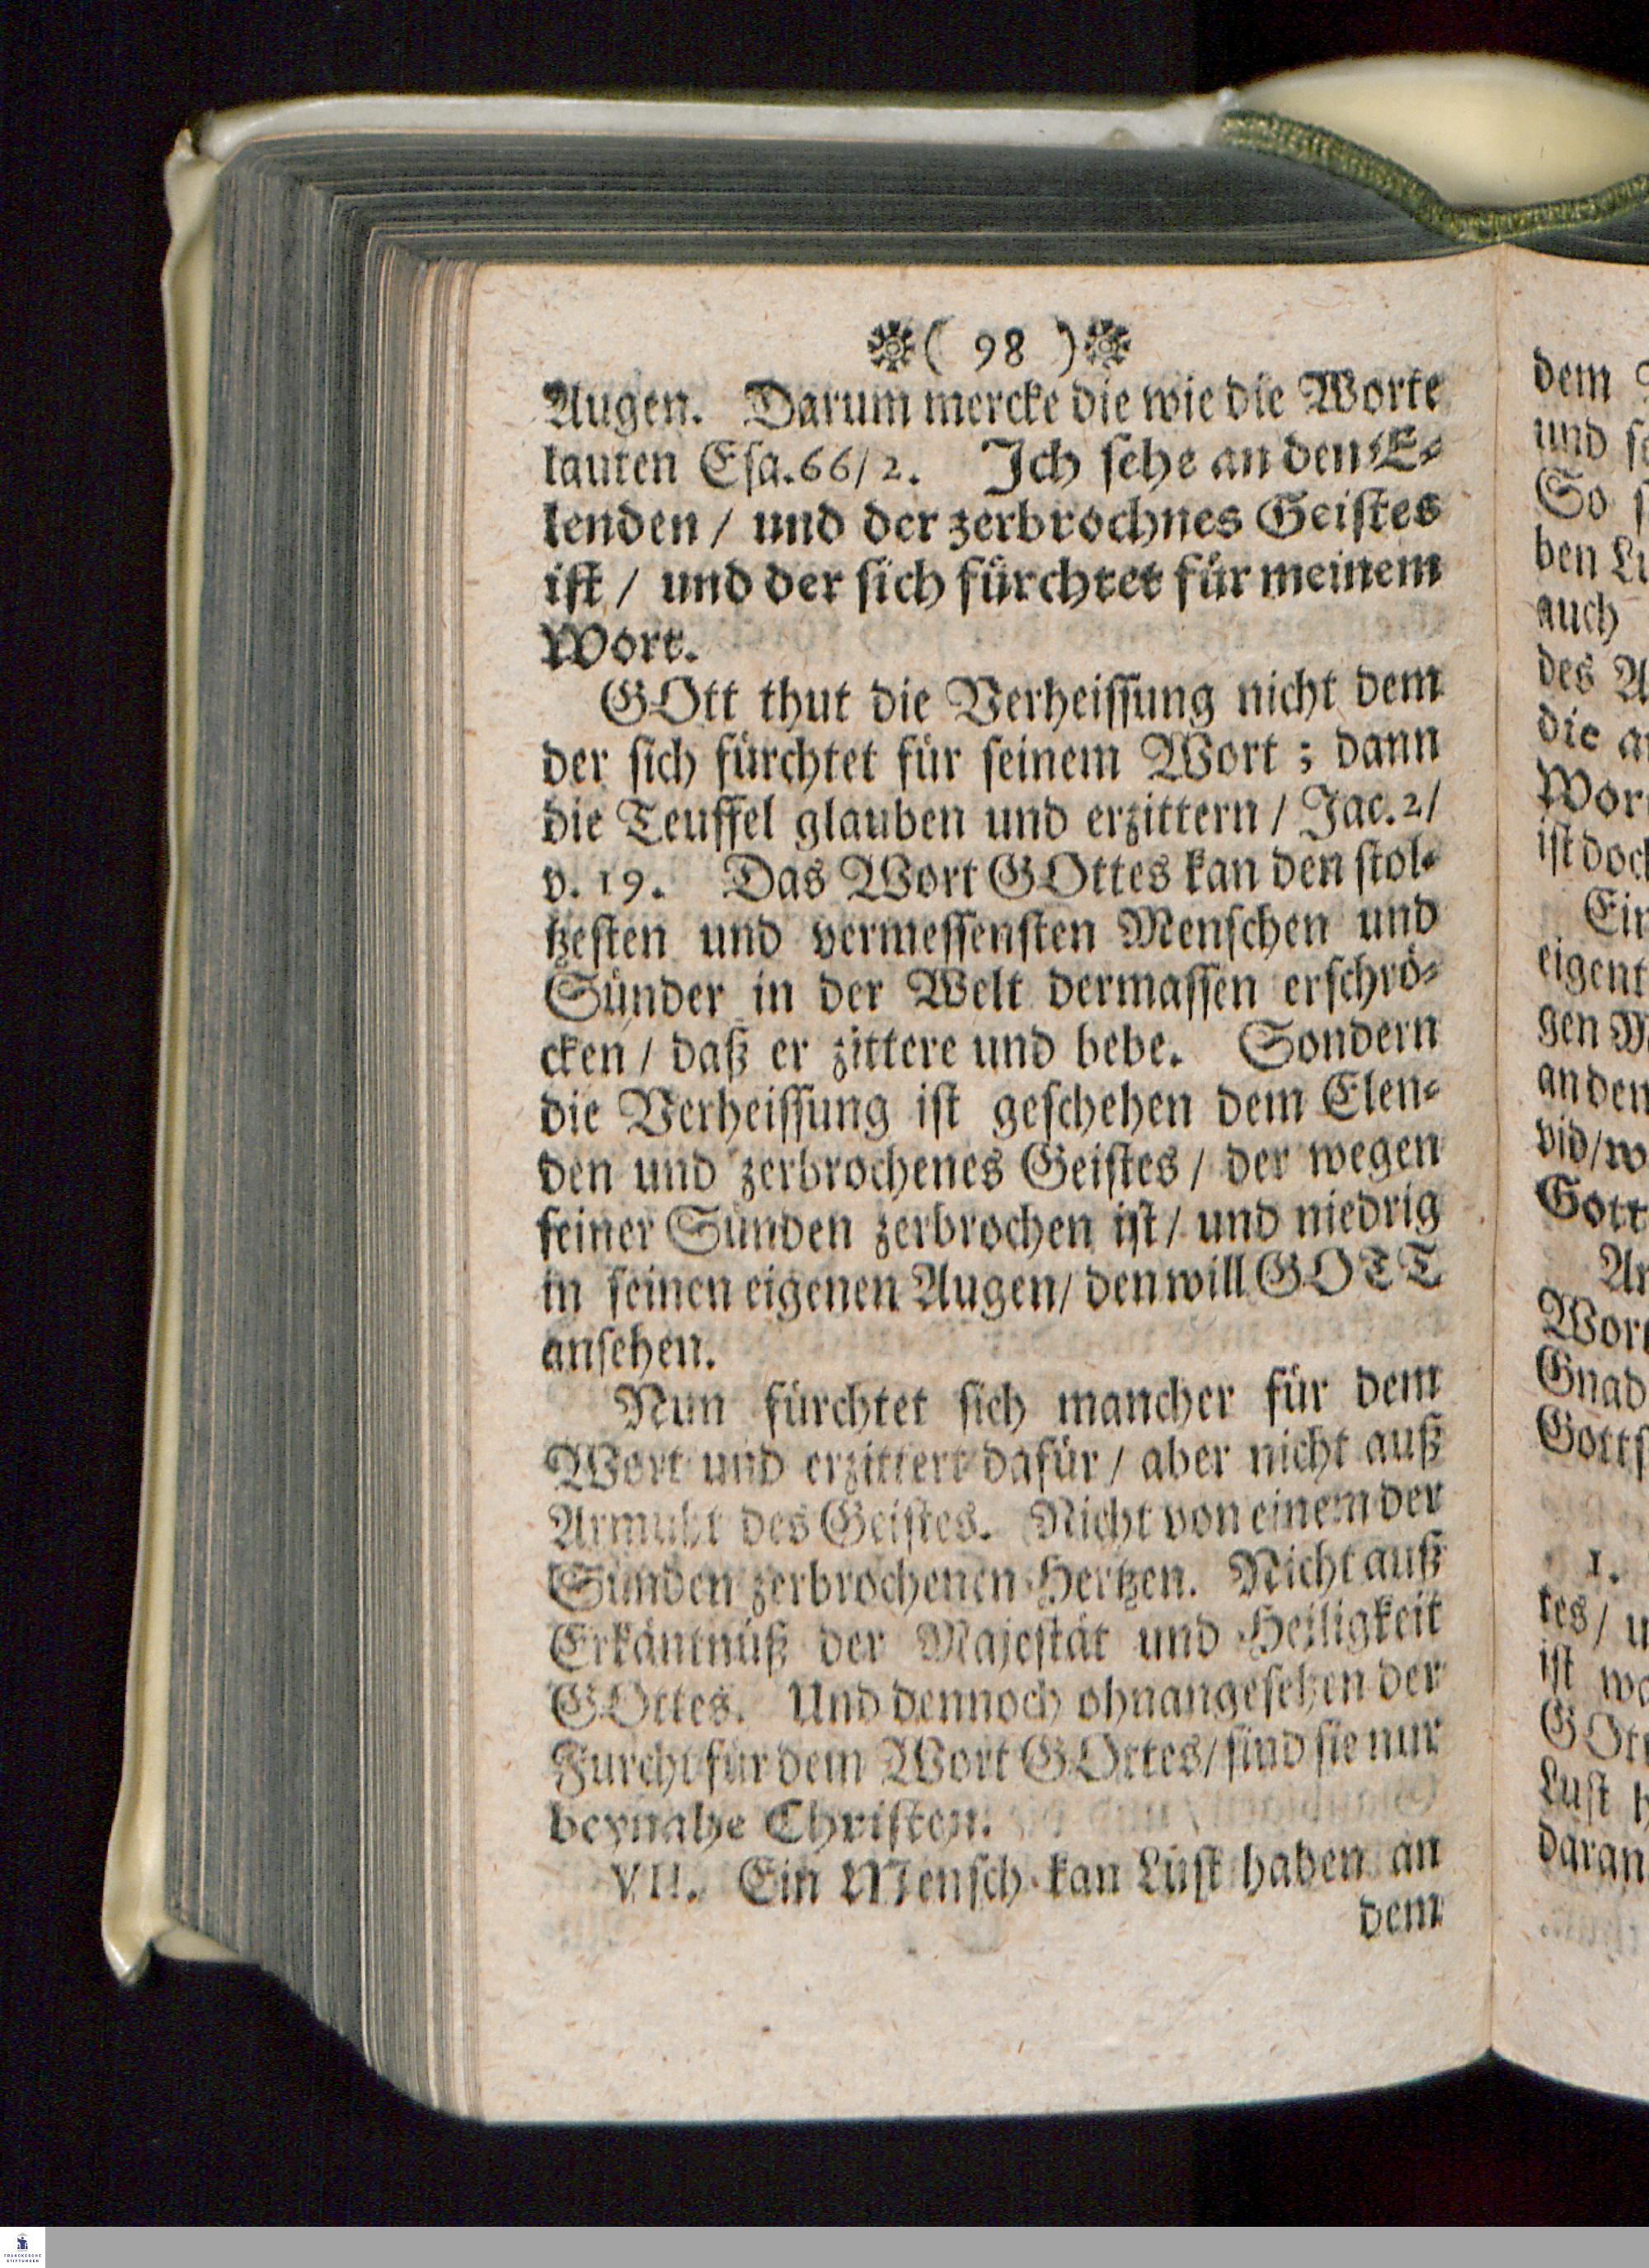 ❋( 98 )❋
Augen. Darum mercke die wie die Worte
lauten Esa. 66/2. Ich sehe an den E-
lenden / und der zerbrochnes Geistes
ist / und der sich fürchtet für meinem
Wort.
GOtt thut die Verheissung nicht dem
der sich fürchtet für seinem Wort; dann
die Teuffel glauben und erzittern / Jac. 2/
v. 19. Das Wort GOttes kan den stol-
tzesten und vermessensten Menschen und
Sünder in der Welt dermassen erschrö-
cken / daß er zittere und bebe. Sondern
die Verheissung ist geschehen dem Elen-
den und zerbrochenes Geistes / der wegen
seiner Sünden zerbrochen ist / und niedrig
in seinen eigenen Augen / den will GOTT
ansehen.
Nun fürchtet sich mancher für dem
Wort und erzittert dafür / aber nicht auß
Armuht des Geistes. Nicht von einem der
Sünden zerbrochenen Hertzen. Nicht auß
Erkäntnüß der Majestät und Heiligkeit
GOttes. Und dennoch ohnangesehen der
Furcht für dem Wort GOttes / sind sie nur
beynahe Christen.
VII. Ein Mensch kan Lust haben an
dem
dem
und
So
ben
auch
des
die
Wor
ist doch
Ein
eigent
gen
an den
vid / w
Gott
Wort
Gnad
Gotts
1.
tes / u
ist
GOtt
Lust
daran
FRANCKESCHE
STIFTUNGEN